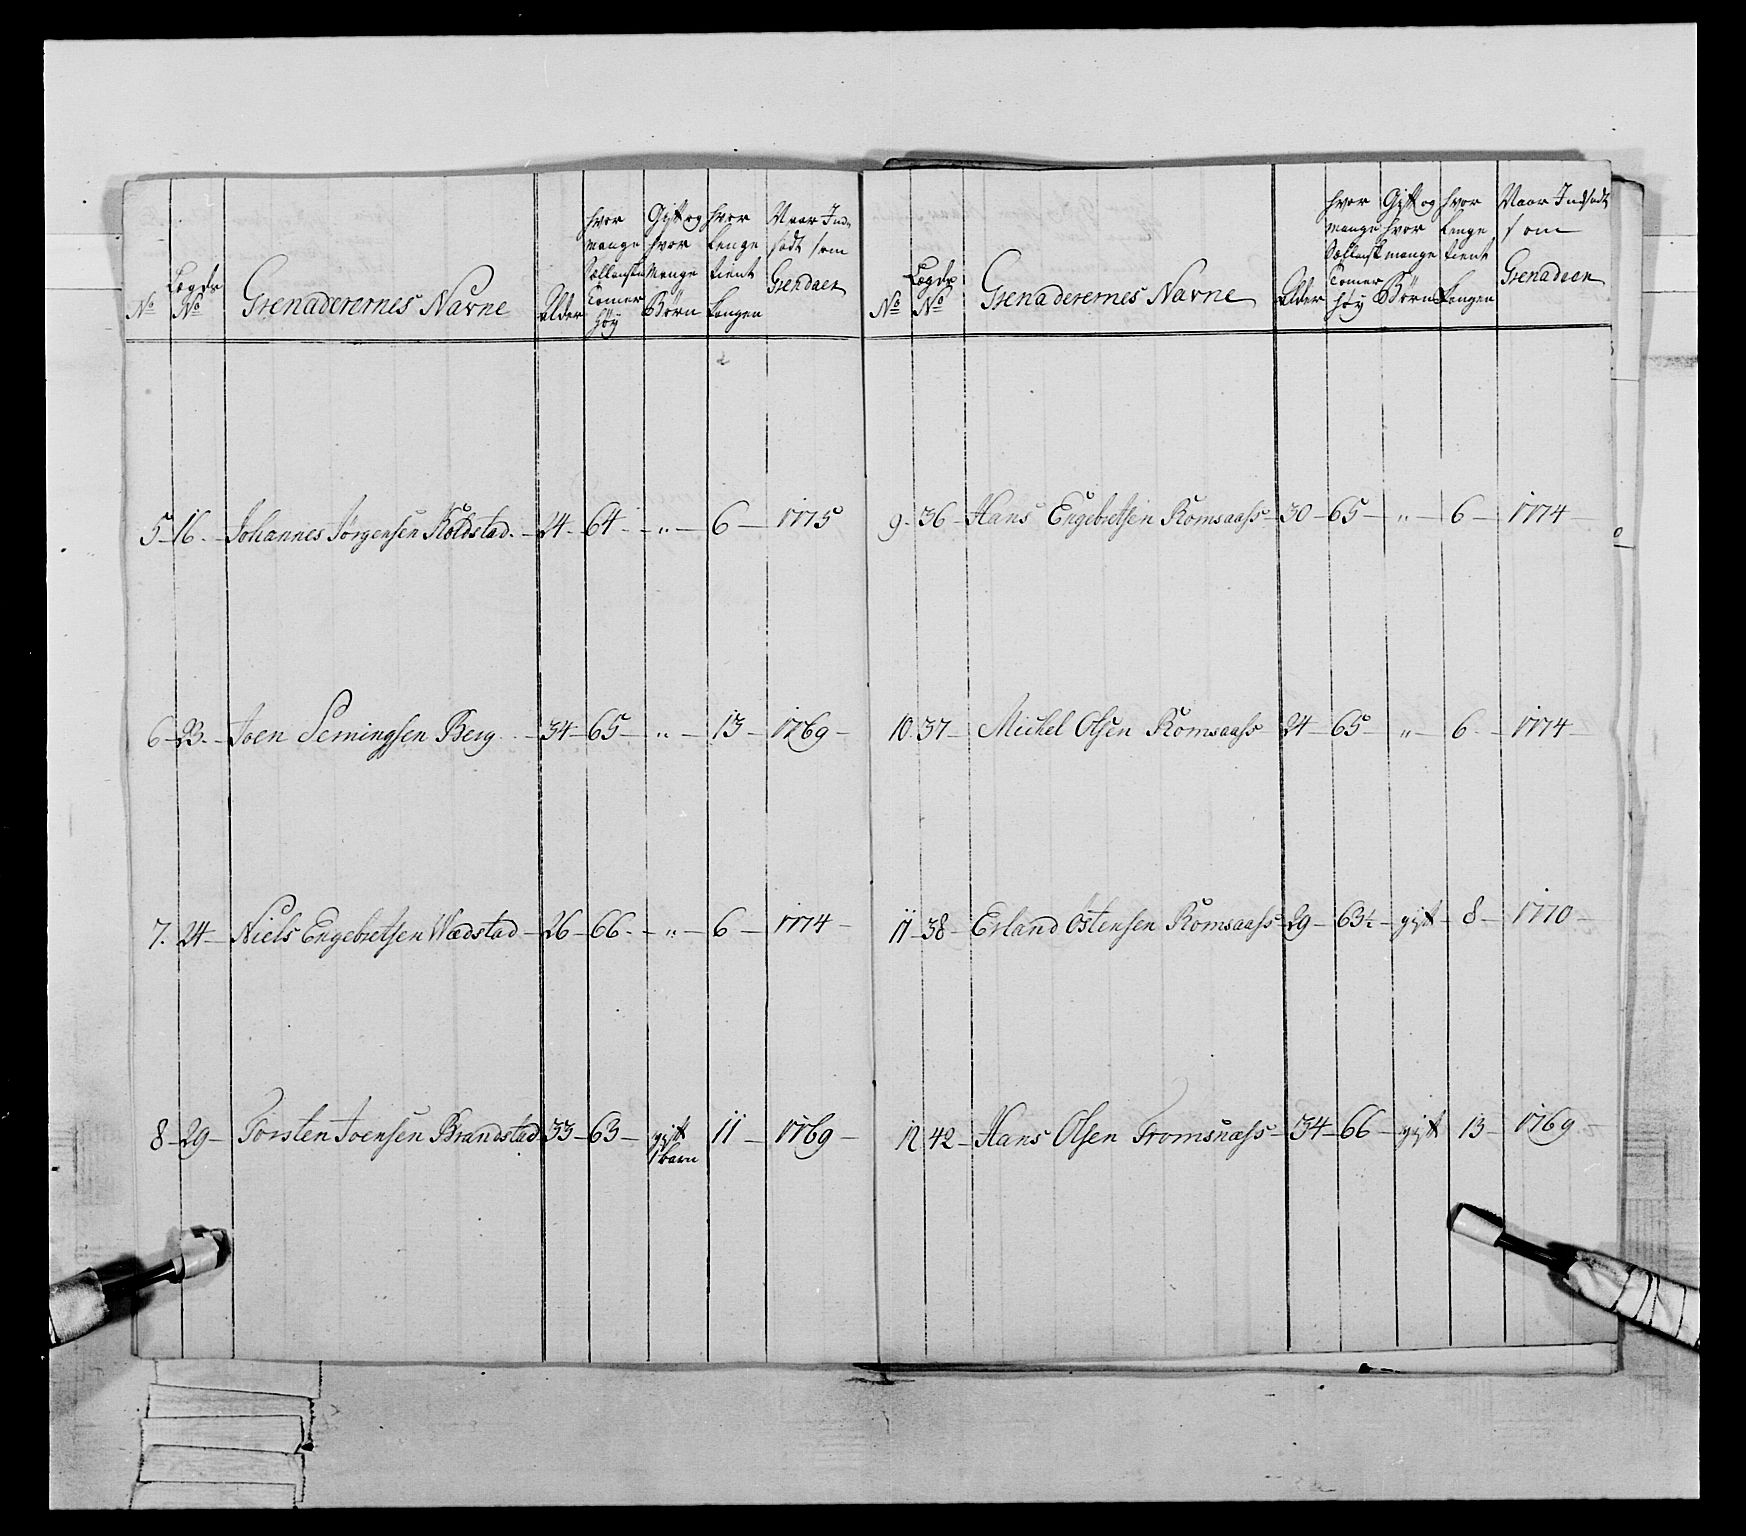 No
Legds No
Grenaderernes Navne
Alder
hvor mange Sællandske Tomer höÿ
Gift og hvor Mange Börn
hvor Lenge tient Kongen
Naar Ind-sadt som Grendaer
5 - 16. - Johannes Jørgensen Koldstad. - 24 - 64 - " - 6 - 1775
6 - 23. - Joen Semingsen Berg - 34 - 65 - " - 13 - 1769 -
7. 24 - Niels Engebretsen Wædstad - 26 - 66. - " - 6 - 1774 -
8 - 29 - Torsten Joensen Brandstad 33 - 63 - gift 1 barn 11 - 1769 -
No
Legds No
Grenaderernes Navne
Alder
hvor mange Sællandsk Tomer höÿ
Gift og hvor mange Börn
hvor Lenge tient Kongen
Naar Indsadt som Grenadeer
9 - 36 - Hans Engebretsen Romsaass - 30 - 65 - " - 6 - 1774
10. 37 - Michel Olsen Romsaass 24 - 65 - " - 6. - 1774 -
11 - 38 - Erland Östensen Romsaass - 29 - 63½ - gift - 8 - 1770 -
12 42 - Hans Olsen Tromsnæss - 34 - 66 - gift 13 - 1769 -